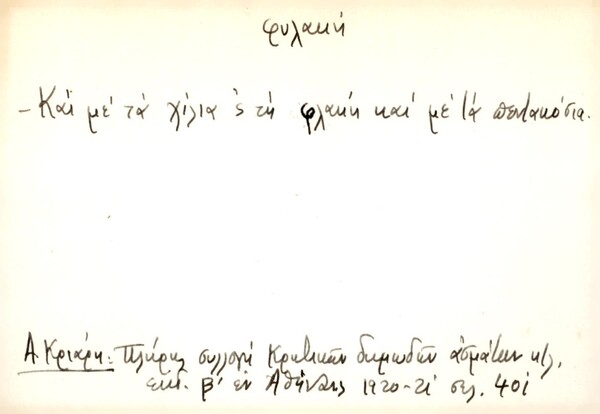 φυλακή
- Καὶ μὲ τὰ χίλια 'ς τὴ φλακὴ καὶ μὲ τὰ πεντακόσια.
Α. Κριάρη: Πλήρης συλλογὴ Κρητικῶν δημωδῶν ἀσμάτων κτλ.
ἐκδ. Β' ἐν Ἀθήναις 1920-21 σελ. 401